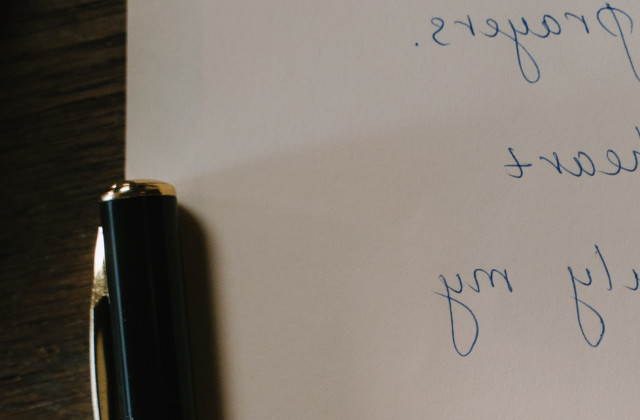 prayers.
heart
ily my